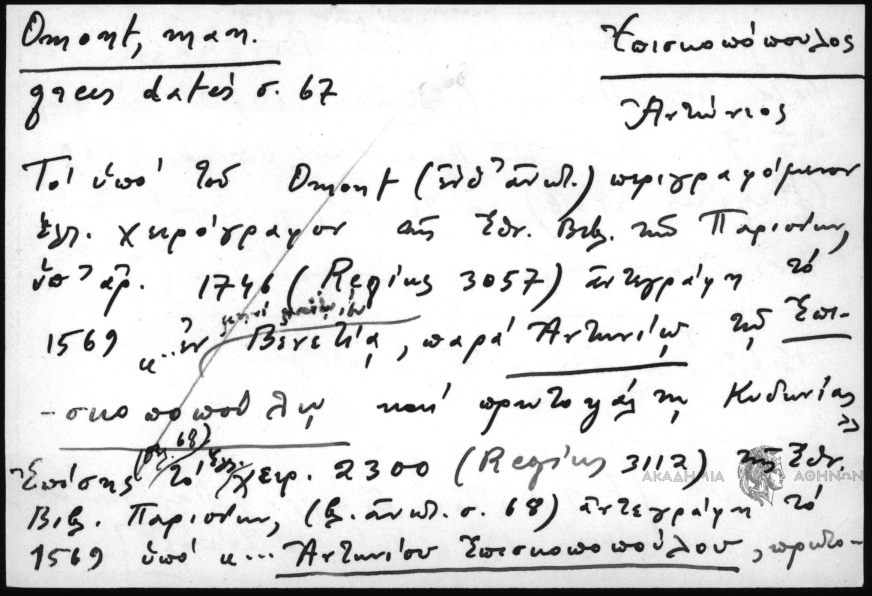 Omont, man.
grecs datés σ. 67
Ἐπισκοπόπουλος
Ἀντώνιος
Τό ὑπό τοῦ Omont (ἔνθ' ἀνωτ.) περιγραφόμενον
ἑλλ. χειρόγραφον τῆς Ἐθν. Βιβ. τῶν Παρισίων,
ὑπ' ἀρ. 1746 (Regius 3057) ἀντεγράφη τό
1569 κ... ἐν Βενετίᾳ, παρά Ἀντωνίῳ τῷ Ἐπι-
-σκοποπούλῳ καί πρωτοπαπᾷ τῆς Κυδωνίας
(σ. 68)
Ἐπίσης τό ἑλλ. χειρ. 2300 (Regius 3112) τῆς Ἐθν.
Βιβ. Παρισίων, (ἔ. ἀνωτ. σ. 68) ἀντεγράφη τό
1569 ὑπό κ... Ἀντωνίου Ἐπισκοποπούλου, πρωτο-
ΑΚΑΔΗΜΙΑ ΑΘΗΝΩΝ